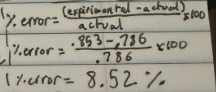 % error = (experimental - actual) / actual x100
% error = .853 - .786 / .786 x100
% error = 8.52 %